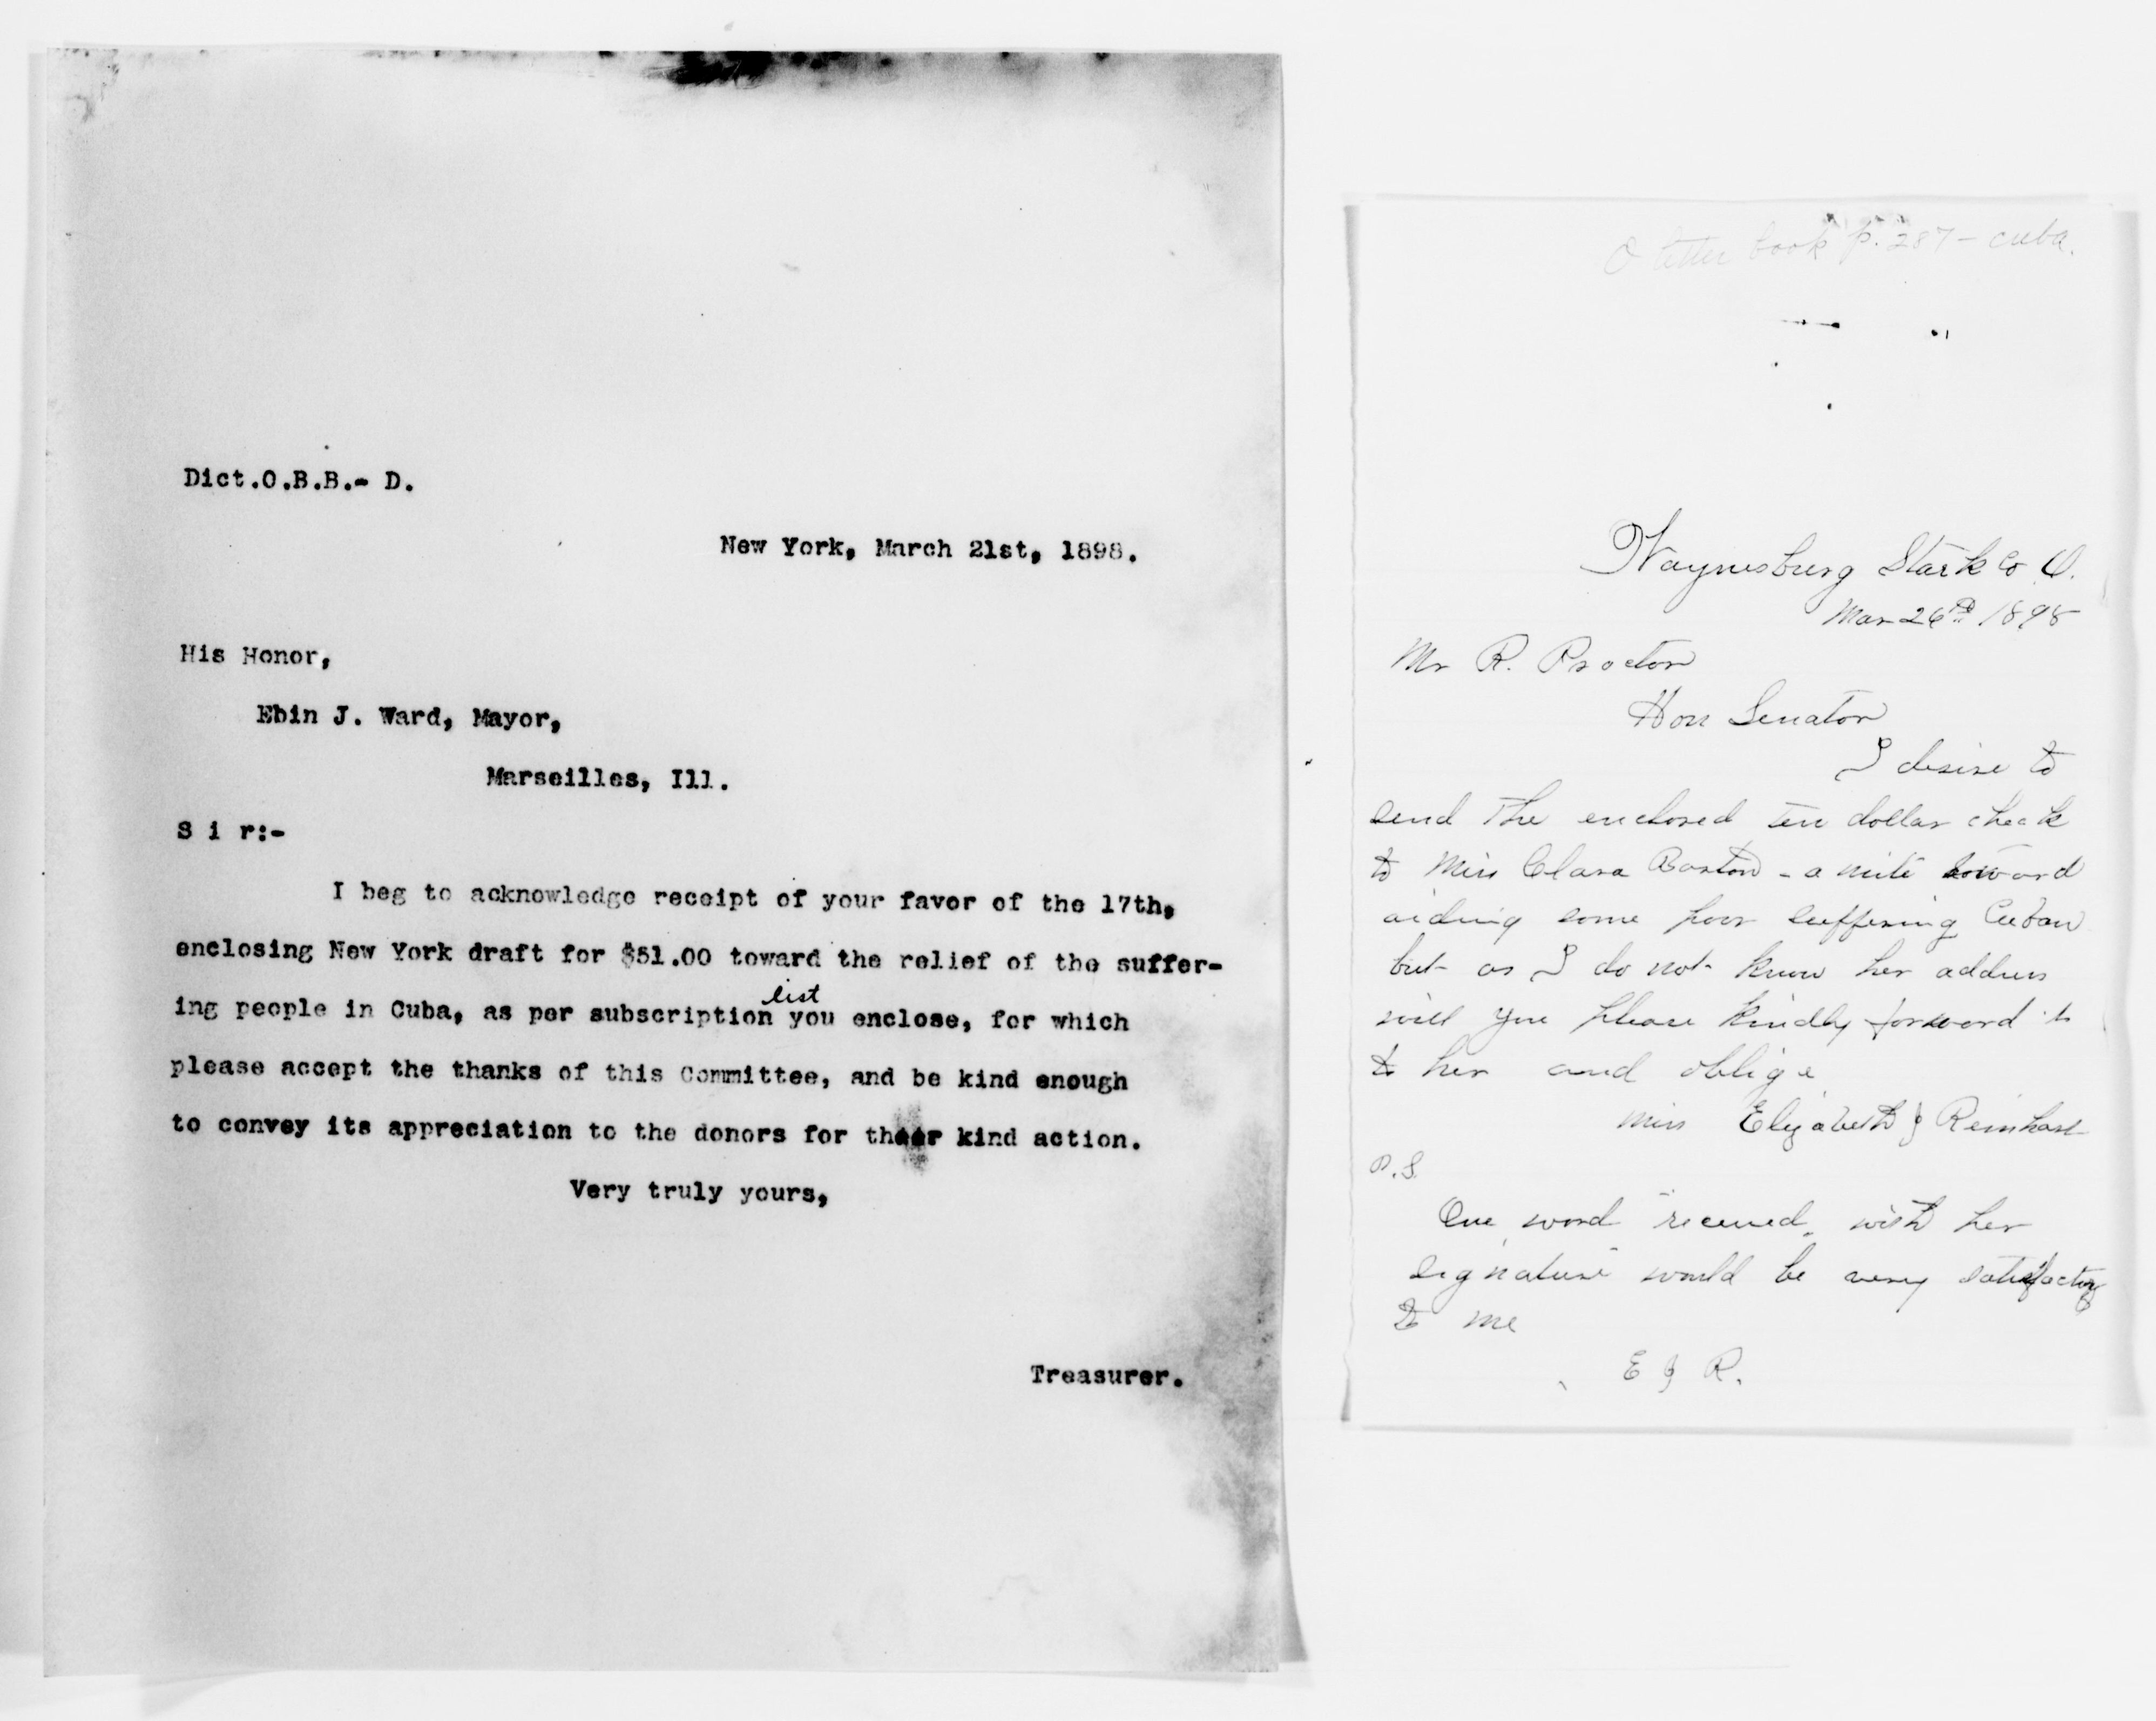 Dict.O.B.B.- D.
New York, March 21st, 1898.
His Honor,
Ebin J. Ward, Mayor,
Marseilles, Ill.
S i r:-
I beg to acknowledge receipt of your favor of the 17th,
enclosing New York draft for $51.00 toward the relief of the suffer-
ing people in Cuba, as per subscription list you enclose, for which
please accept the thanks of this Committee, and be kind enough
to convey its appreciation to the donors for their kind action.
Very truly yours,
Treasurer.
letter book p. 287 - Cuba.
Waynesburg Stark Co O.
Mar 26th 1898
Mr R. Proctor
Hon Senator
I desire to
send the enclosed ten dollar check
to Miss Clara Barton - a mite toward
aiding some poor suffering Cuban
but as I do not know her address
will you please kindly forward it
to her and oblige
Miss Elizabeth J Reinhart
P.S.
One word "received" with her
signature would be very satisfactory
to me
E J R.